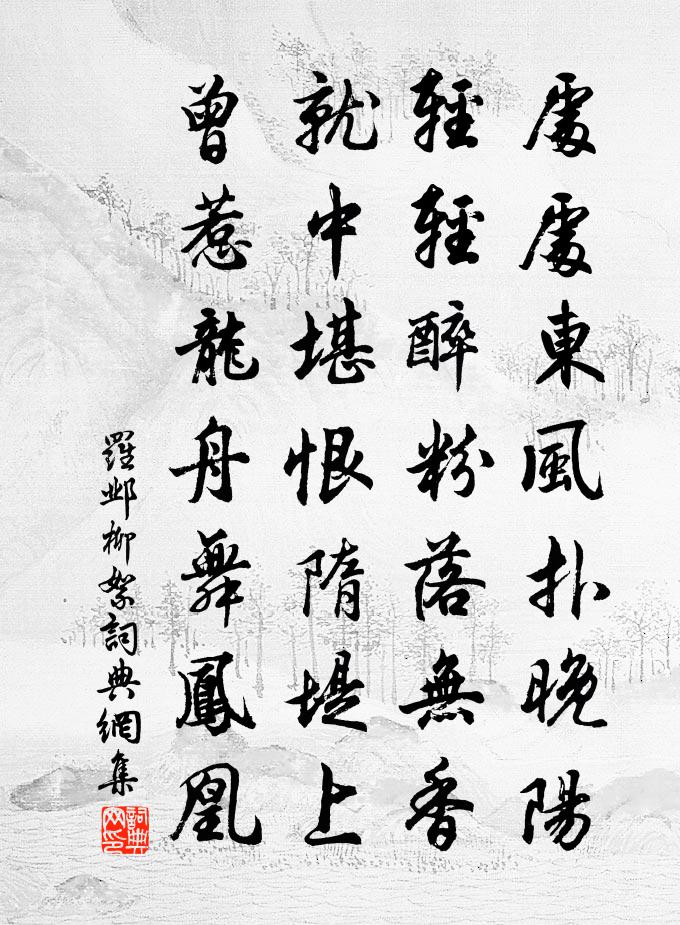 處處東風扑晚陽
輕輕醉粉落無香
就中堪恨隋堤上
曾惹龍舟舞鳳凰
羅鄴柳絮詞典網集
詞典网印